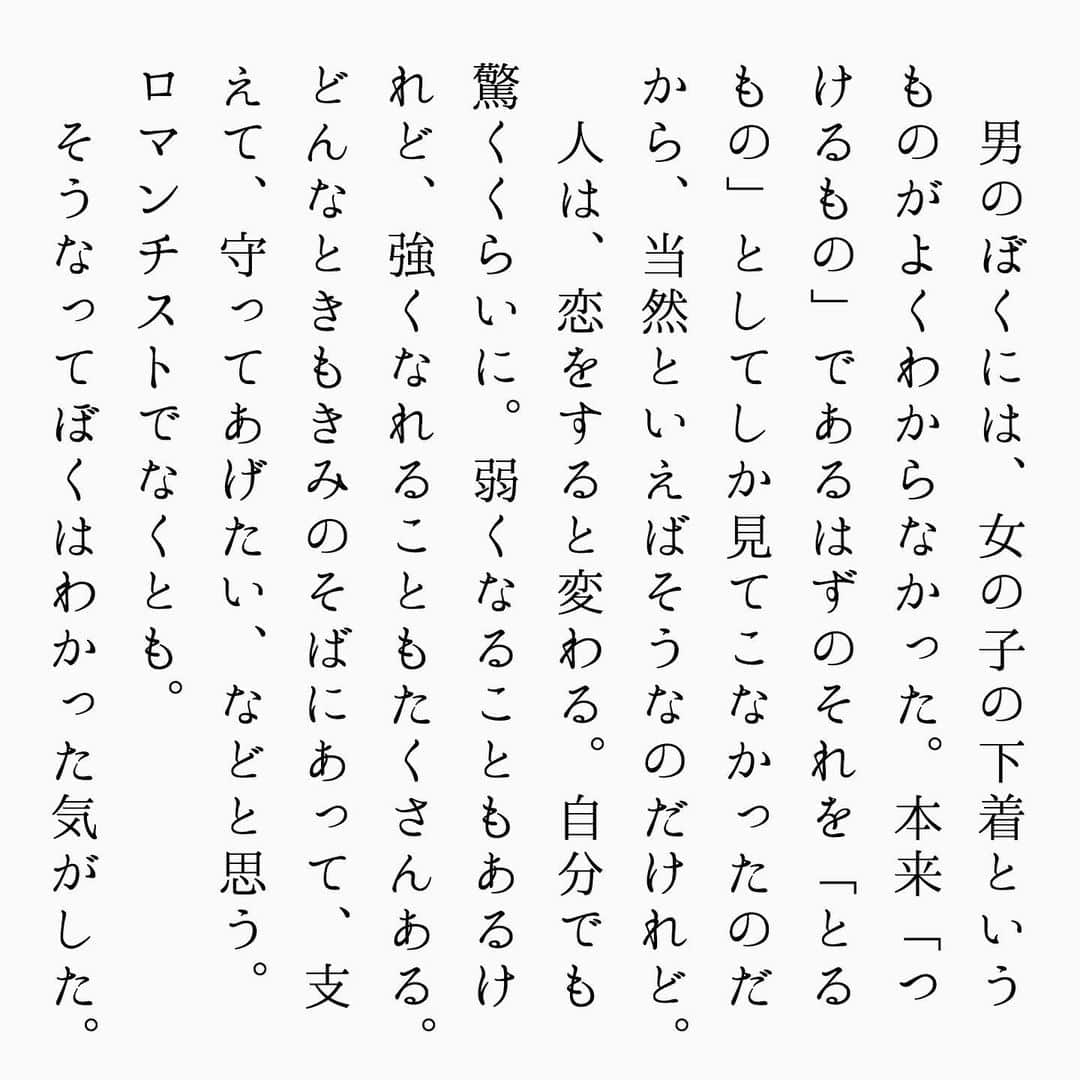 男のぼくには、女の子の下着という
ものがよくわからなかった。本来「つ
けるもの」であるはずのそれを「とる
もの」としてしか見てこなかったのだ
から、当然といえばそうなのだけれど。
人は、恋をすると変わる。自分でも
驚くくらいに。弱くなることもあるけ
れど、強くなれることもたくさんある。
どんなときもきみのそばにあって、支
えて、守ってあげたい、などと思う。
ロマンチストでなくとも。
そうなってぼくはわかった気がした。